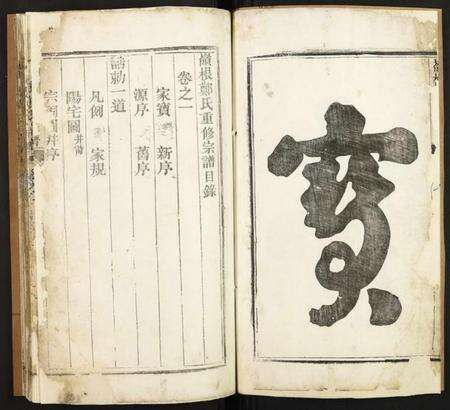 寶
嶺根鄭氏重修宗譜目錄
卷之一
家寶 新序
源序 舊序
誥勅一道
凡例 家規
陽宅圖并書
宗 并序